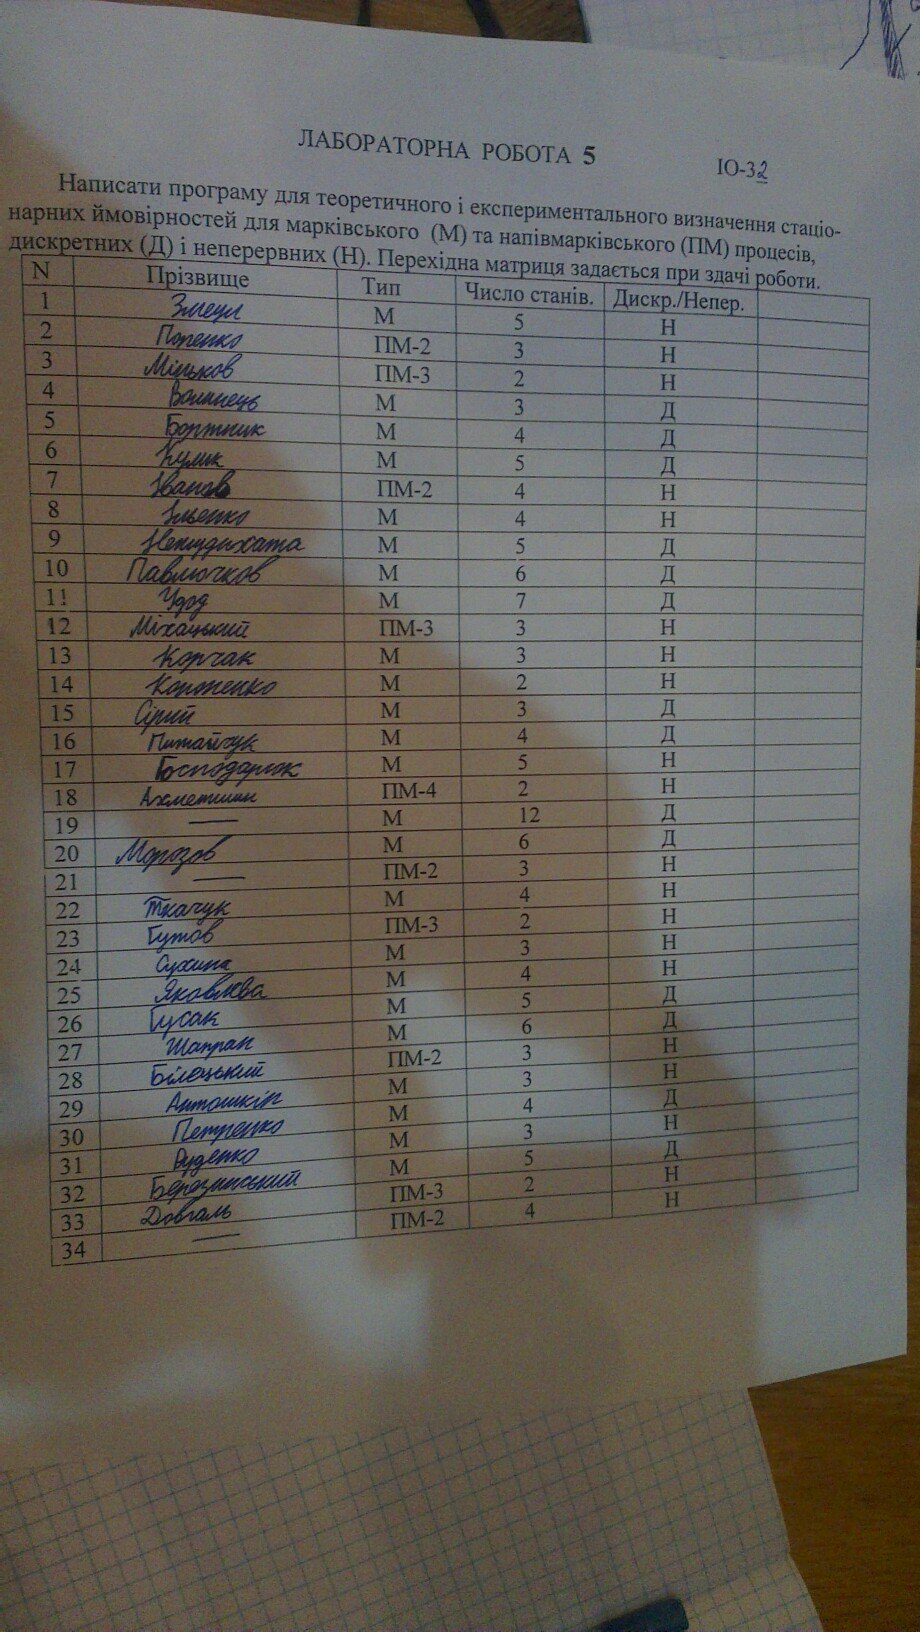 ЛАБОРАТОРНА РОБОТА 5
ІО-32
Написати програму для теоретичного і експериментального визначення стаціо-
нарних ймовірностей для марківського (М) та напівмарківського (ПМ) процесів,
дискретних (Д) і неперервних (Н). Перехідна матриця задається при здачі роботи.
N Прізвище Тип Число станів. Дискр./Непер.
1 М 5 Н
2 Попенко ПМ-2 3 Н
3 Міньков ПМ-3 2 Н
4 М 3 Д
5 Бортник М 4 Д
6 Кулик М 5 Д
7 Іванов ПМ-2 4 Н
8 Ільєнко М 4 Н
9 Непийдихата М 5 Д
10 Павлючков М 6 Д
11 М 7 Д
12 Міхацький ПМ-3 3 Н
13 Корчак М 3 Н
14 М 2 Н
15 Сірий М 3 Д
16 М 4 Д
17 Господарик М 5 Н
18 Ахметшин ПМ-4 2 Н
19 — М 12 Д
20 Морозов М 6 Д
21 — ПМ-2 3 Н
22 Ткачук М 4 Н
23 Гутов ПМ-3 2 Н
24 Сухина М 3 Н
25 Яковлєва М 4 Н
26 Гусак М 5 Д
27 Шапран М 6 Д
28 Білецький ПМ-2 3 Н
29 Антошкін М 3 Н
30 Петренко М 4 Д
31 Руденко М 3 Н
32 Березинський М 5 Д
33 Довгаль ПМ-3 2 Н
34 — ПМ-2 4 Н